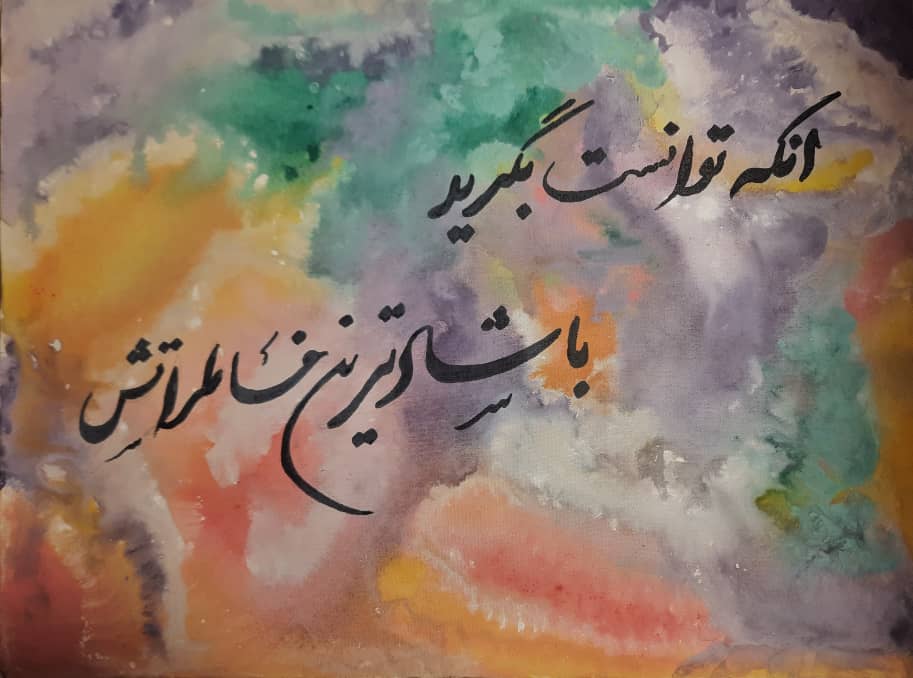 انکه توانست بگرید
با شادترین خاطراتش